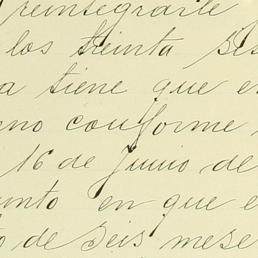 reintegrarle
los treinta
a tiene que
no conforme
16 de Junio de
unto en que e
o de seis mese